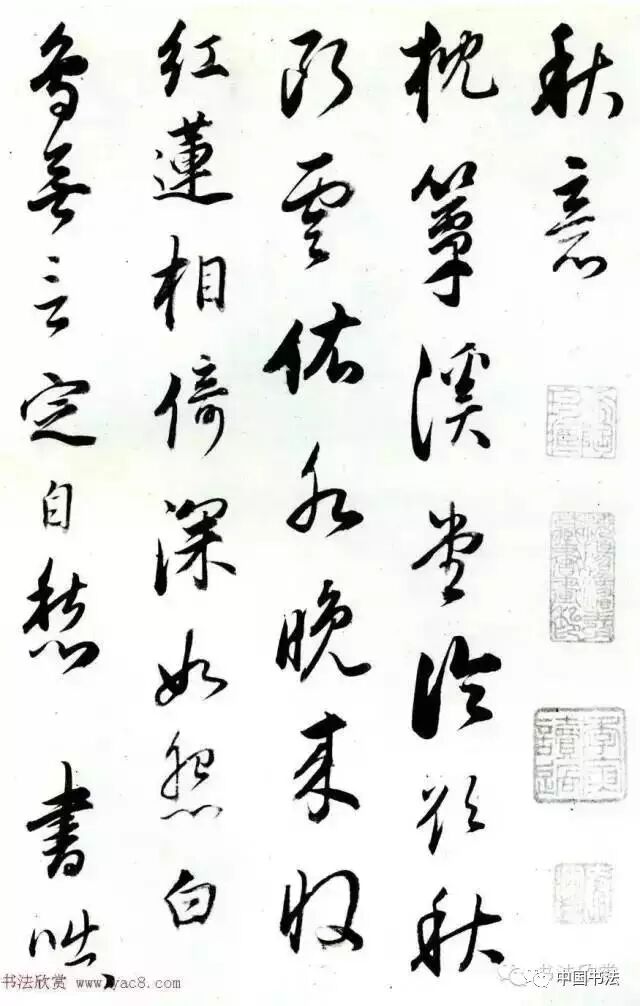 秋意
枕簟溪堂冷欲秋
斷雲依水晚来收
紅蓮相倚深如怨白
鳥無言定自愁 書咄
书法欣赏 www.yac8.com
书法欣赏
中国书法